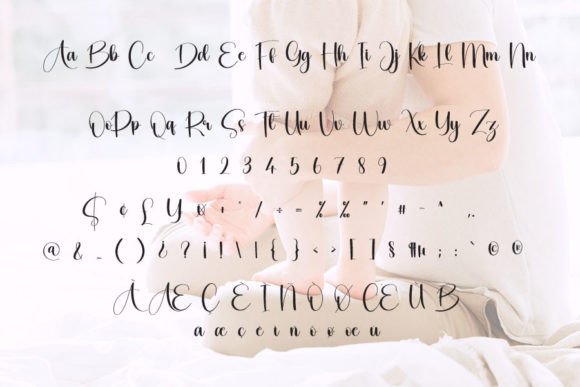 Aa Bb Cc Dd Ee Ff Gg Hh Ii Jj Kk Ll Mm Nn
Oo Pp Qq Rr Ss Tt Uu Vv Ww Xx Yy Zz
0 1 2 3 4 5 6 7 8 9
$ ¢ £ ¥ + * / ÷ = % ‰ " ' # - ^ , .
@ & _ ( ) ¿ ? ¡ ! \ | { } < > [ ] § ¶ ; : ` © ®
À Æ Ç È Ì Ñ Ò Ø Œ Ù
æ ç œ